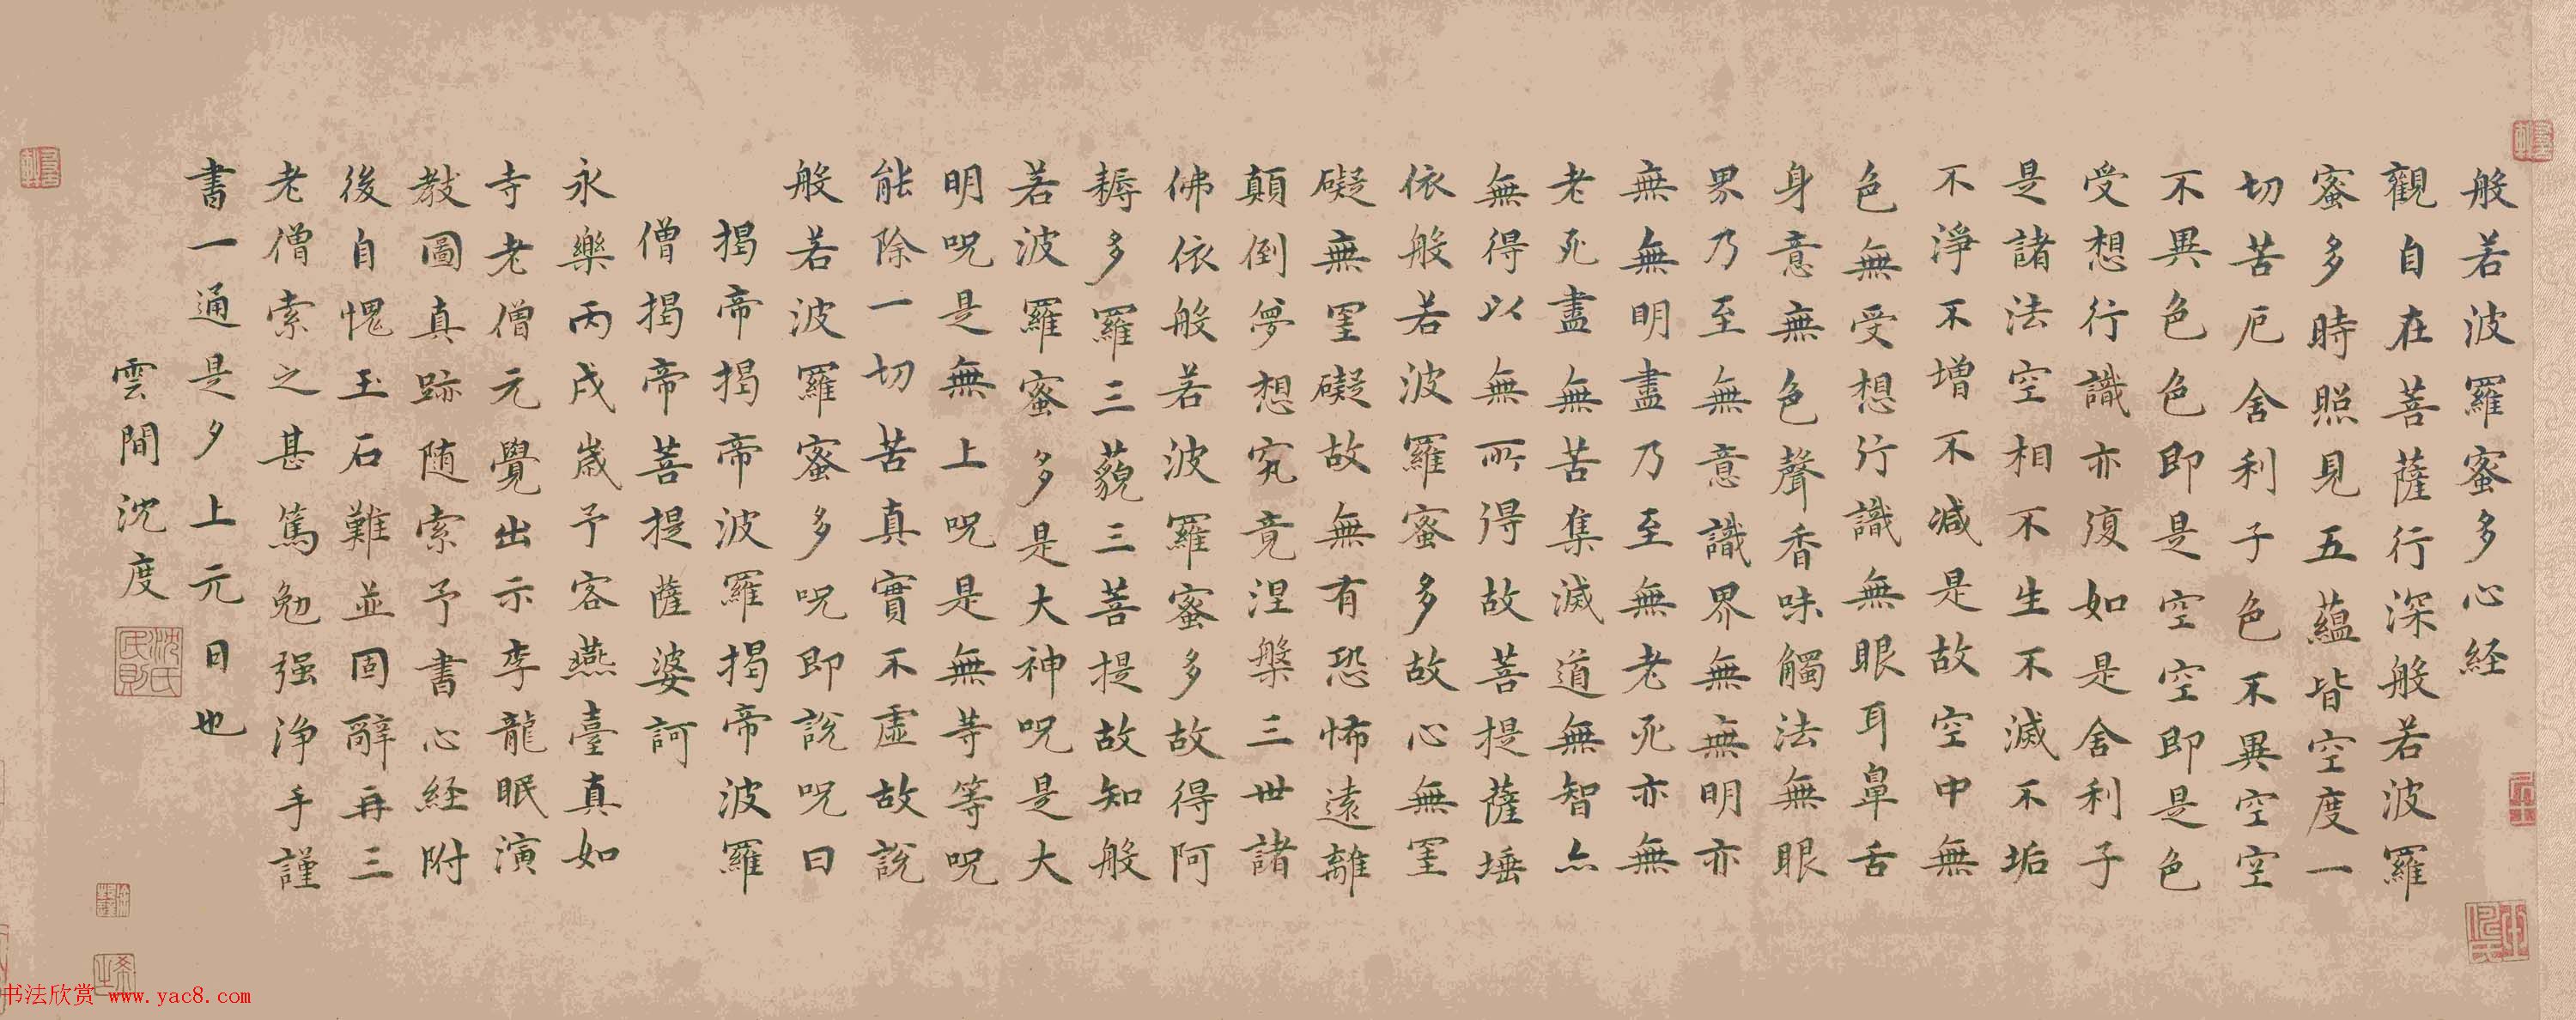 般若波羅蜜多心経
觀自在菩薩行深般若波羅
蜜多時照見五蘊皆空度一
切苦厄舍利子色不異空空
不異色色即是空空即是色
受想行識亦復如是舍利子
是諸法空相不生不滅不垢
不淨不增不減是故空中無
色無受想行識無眼耳鼻舌
身意無色聲香味觸法無眼
界乃至無意識界無無明亦
無無明盡乃至無老死亦無
老死盡無苦集滅道無智亦
無得以無所得故菩提薩埵
依般若波羅蜜多故心無罣
礙無罣礙故無有恐怖遠離
顛倒夢想究竟涅槃三世諸
佛依般若波羅蜜多故得阿
耨多羅三藐三菩提故知般
若波羅蜜多是大神呪是大
明呪是無上呪是無等等呪
能除一切苦真實不虛故說
般若波羅蜜多呪即說呪曰
揭帝揭帝波羅揭帝波羅
僧揭帝菩提薩婆訶
永樂丙戌歲予客燕臺真如
寺老僧元覺出示李龍眠演
教圖真跡随索予書心経附
後自愧玉石難並固辭再三
老僧索之甚篤勉强浄手謹
書一通是夕上元日也
雲間沈度
沈氏民則
书法欣赏 www.yac8.com